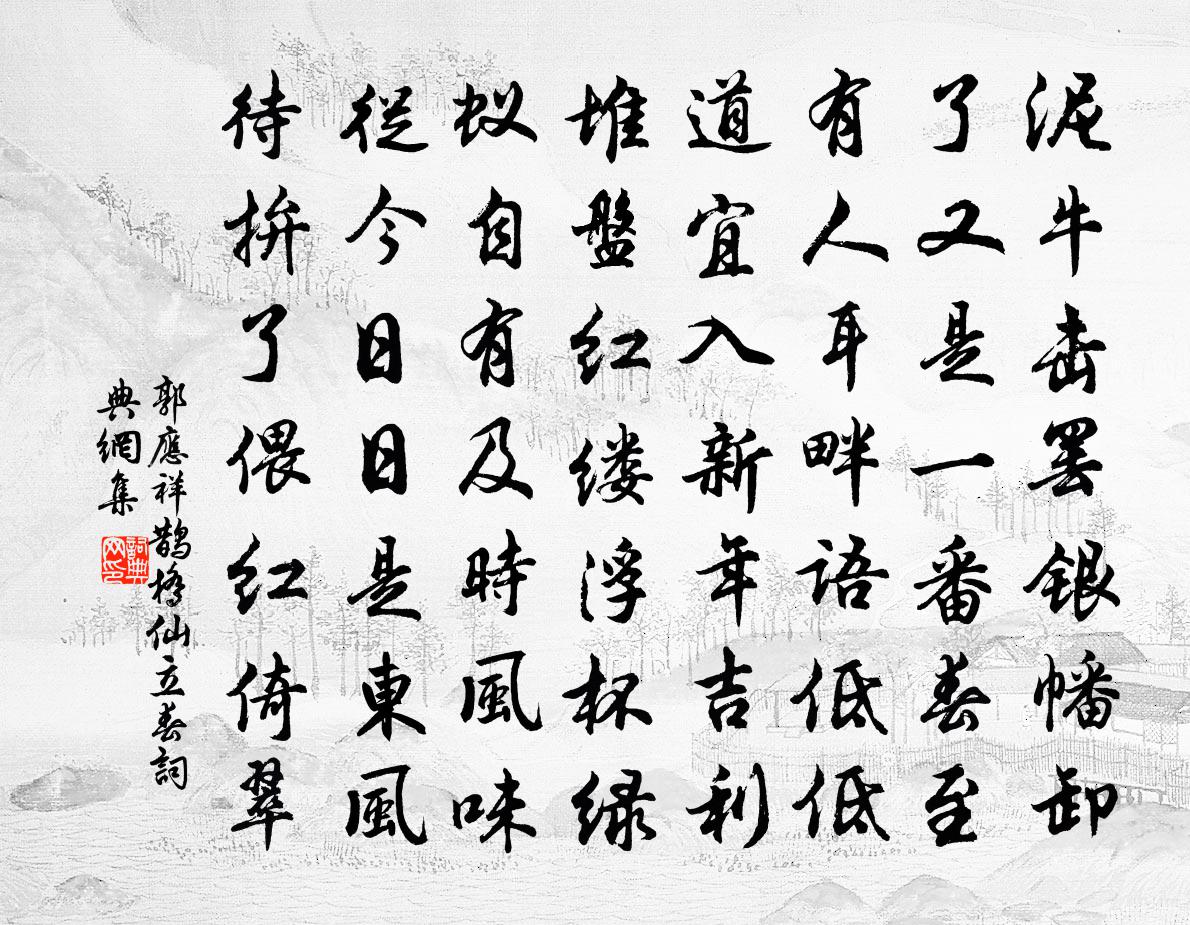 泥牛击罢银幡卸
了又是一番春至
有人耳畔语低低
道宜入新年吉利
堆盤红缕浮杯绿
蚁自有及時風味
從今日日是東風
待拚了偎红倚翠
郭應祥鵲橋仙立春詞
典網集
詞典网印